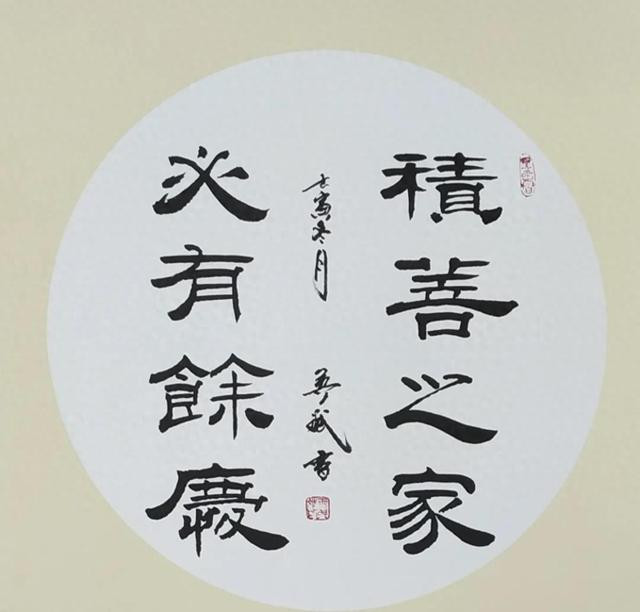 積善之家
必有餘慶
壬寅冬月